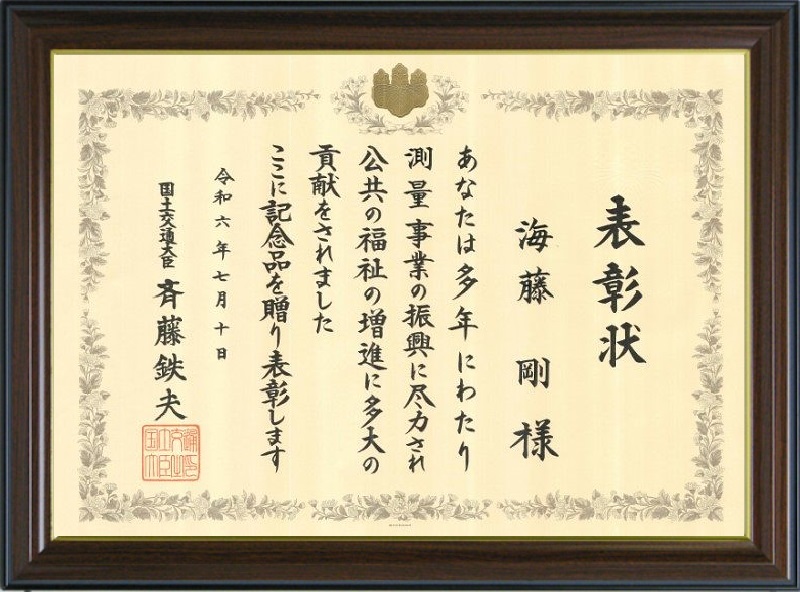 表彰状
海藤 剛 様
あなたは多年にわたり
測量事業の振興に尽力され
公共の福祉の増進に多大の
貢献をされました
ここに記念品を贈り表彰します
令和六年七月十日
国土交通大臣 斉藤鉄夫